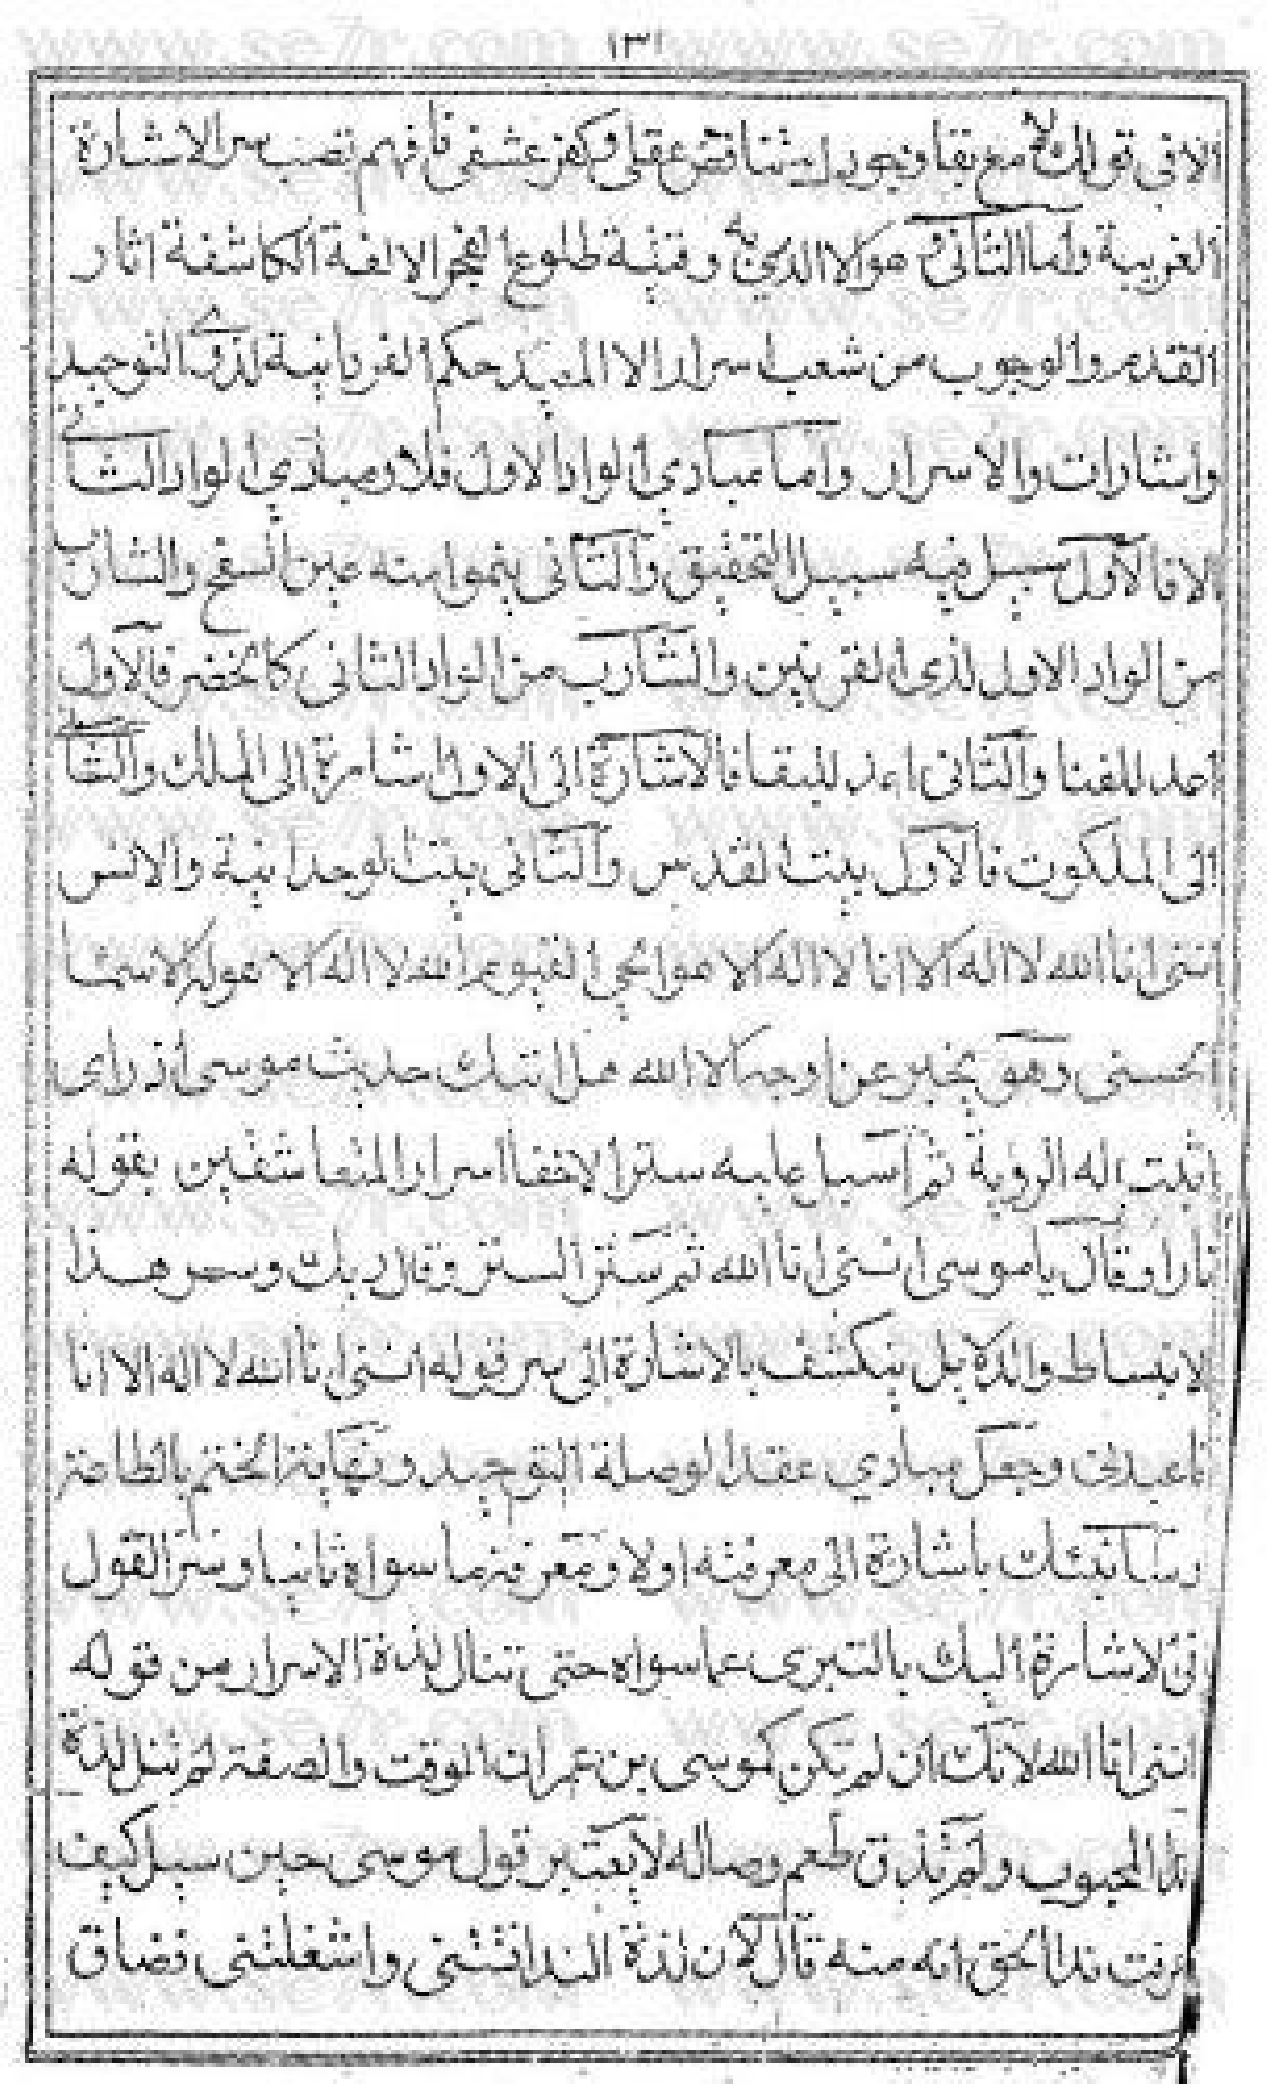 ١٣١
الا فى قولك لا مع بقا وجودك تناقض عقلى وكفر عشقى فافهم تصب سر الاشارة
الغريبة واما الثانى هو الا الذى به وقتية طلوع الفجر الالفة الكاشفة اثار
القدم والوجوب من شعب اسرار الا المتيد حكم الفردانية لذى التوحيد
واشارات والاسرار واما مبادى الواد الاول فلا ومبادى الواد الثانى
الا فالاول سبيل فيه سبيل التحقيق والثانى ينمو منه عين السفح والشارب
من الواد الاول لذى القرنين والشارب من الواد الثانى كالخضر فالاول
اعد للفنا والثانى اعد للبقا فالاشارة الى الاول اشارة الى الملك والثانى
الى الملكوت فالاول بيت القدس والثانى بيت الوحدانية والانس
اننى انا الله لا اله الا انا لا اله الا هو الحى القيوم الله لا اله الا هو له الاسما
الحسنى وهو يخبر عن اوجه الا الله هل اتيك حديث موسى اذ راى
اثبت له الرؤية ثم اسبل عليه سترا لاخفا اسرار المتعاشقين بقوله
نارا وقال يا موسى اننى انا الله ثم ستر الستر وقال ربك وسر هذا
الانبساط والدلايل ينكشف بالاشارة الى سر قوله اننى انا الله لا اله الا انا
فاعبدنى وجعل مبادى عقد الوصلة التوحيد ونهاية الختم بالطاعة
رسانيتك باشارة الى معرفته اولا ومعرفة ما سواه ثانيا وستر القول
فى الاشارة اليك بالتبرى عما سواه حتى تنال لذة الاسرار من قوله
اننى انا الله لانك ان لم تكن كموسى بن عمران الوقت والصفة لم تنل لذة
ندا المحبوب ولم تذق طعم وصاله لا يعتبر قول موسى حين سيل كيف
عرفت ندا الحق انه منه قال لان لذة الندا اتتنى واشغلتنى فضاق
www.se7r.com